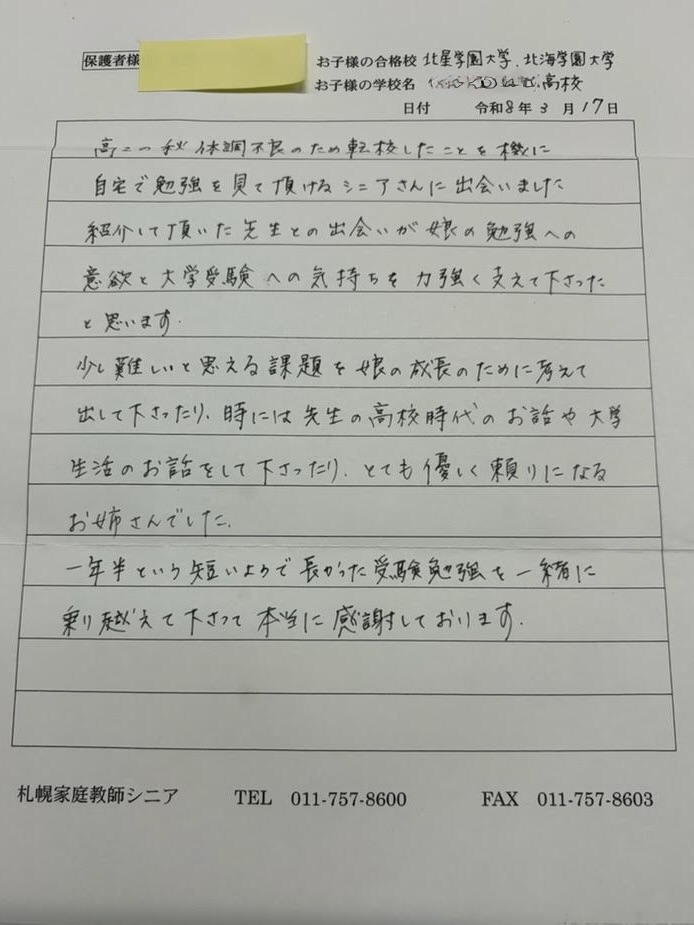 保護者様 お子様の合格校 北星学園大学、北海学園大学
お子様の学校名 高校
日付 令和8年3月17日
高二の秋 体調不良のため転校したことを機に
自宅で勉強を見て頂けるシニアさんに出会いました
紹介して頂いた先生との出会いが娘の勉強への
意欲と大学受験への気持ちを力強く支えて下さった
と思います.
少し難しいと思える課題を娘の成長のために考えて
出して下さったり、時には先生の高校時代のお話や大学
生活のお話をして下さったり、とても優しく頼りになる
お姉さんでした.
一年半という短いようで長かった受験勉強を一緒に
乗り越えて下さって本当に感謝しております.
札幌家庭教師シニア TEL 011-757-8600 FAX 011-757-8603